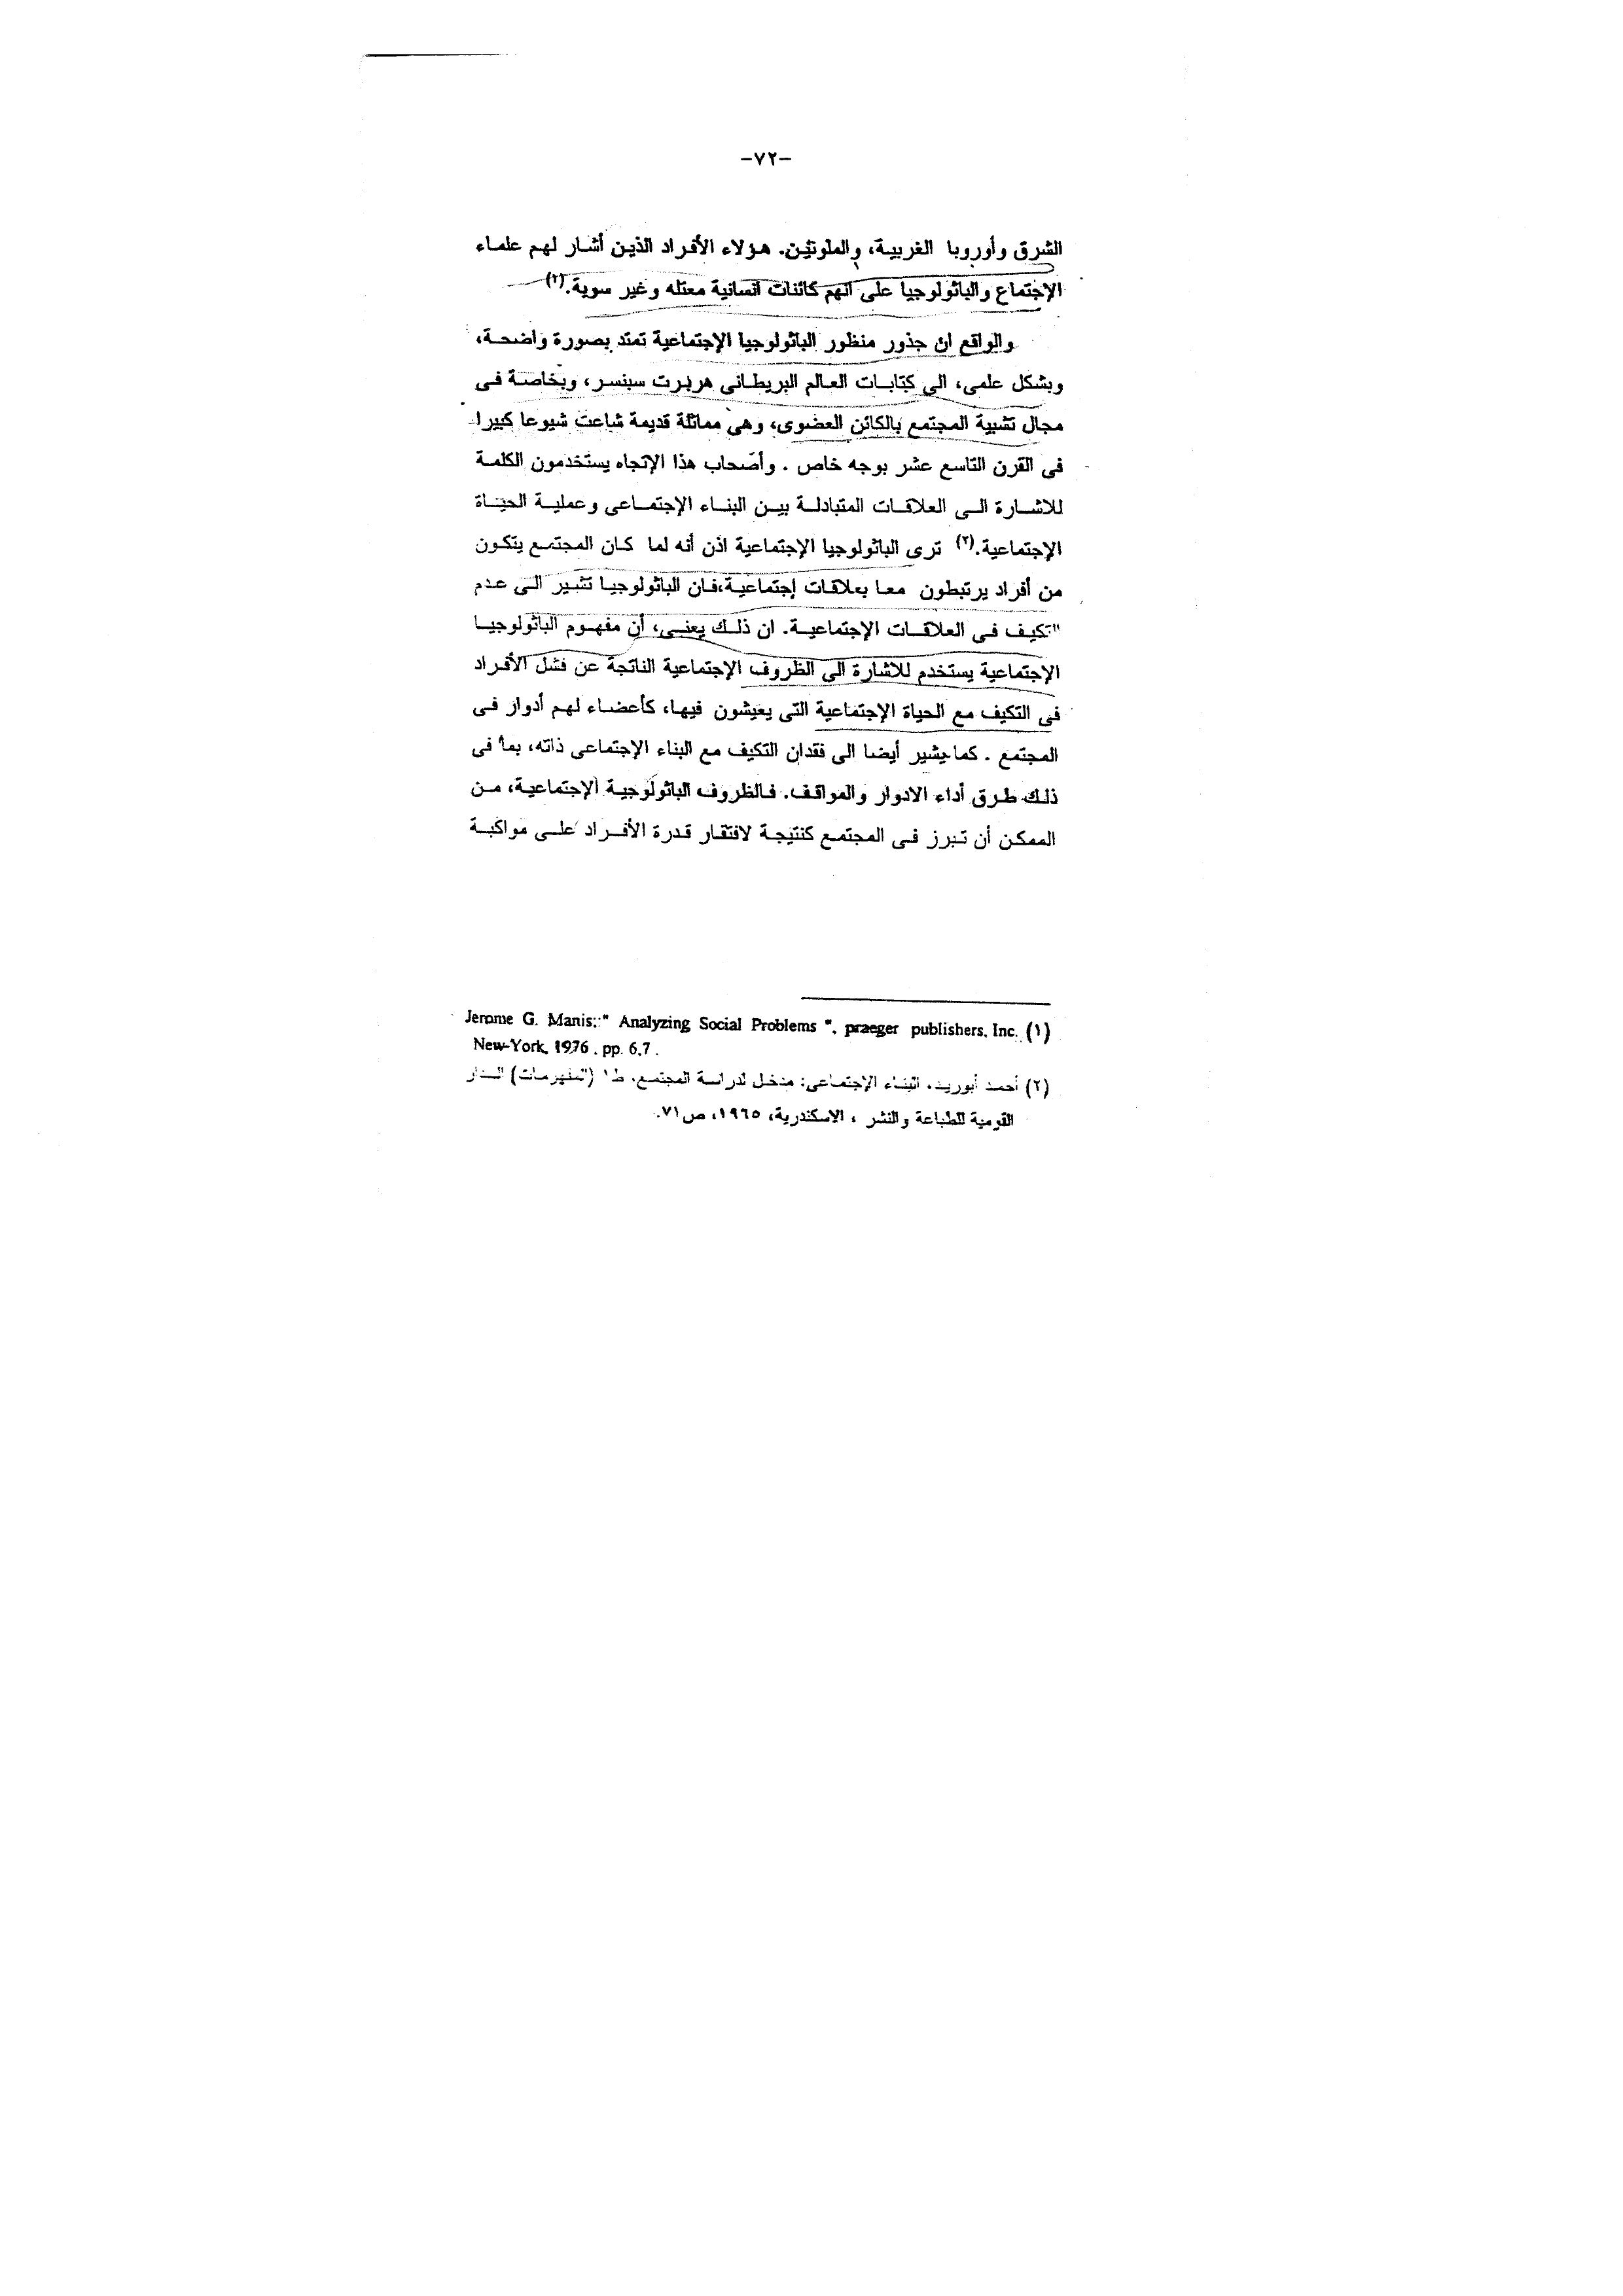 -٧٢-
الشرق وأوروبا الغربية، والملونين. هؤلاء الأفراد الذين أشار لهم علماء
الإجتماع والباثولوجيا على انهم كائنات انسانية معتله وغير سوية.
والواقع ان جذور منظور الباثولوجيا الإجتماعية تمتد بصورة واضحة،
وبشكل علمى، الى كتابات العالم البريطانى هربرت سبنسر، وبخاصة فى
مجال تشبية المجتمع بالكائن العضوى، وهى مماثلة قديمة شاعت شيوعا كبيرا
فى القرن التاسع عشر بوجه خاص . وأصحاب هذا الإتجاه يستخدمون الكلمة
للاشارة الى العلاقات المتبادلة بين البناء الإجتماعى وعملية الحياة
الإجتماعية.(٢) ترى الباثولوجيا الإجتماعية اذن أنه لما كان المجتمع يتكون
من أفراد يرتبطون معا بعلاقات إجتماعية،فان الباثولوجيا تشير الى عدم
تكيف فى العلاقات الإجتماعية. ان ذلك يعنى، أن مفهوم الباثولوجيا
الإجتماعية يستخدم للاشارة الى الظروف الإجتماعية الناتجة عن فشل الأفراد
فى التكيف مع الحياة الإجتماعية التى يعيشون فيها، كأعضاء لهم أدوار فى
المجتمع . كما يشير أيضا الى فقدان التكيف مع البناء الإجتماعى ذاته، بما فى
ذلك طرق أداء الادوار والمواقف. فالظروف الباثولوجية الإجتماعية، من
الممكن أن تبرز فى المجتمع كنتيجة لافتقار قدرة الأفراد على مواكبة
(١) Jerome G. Manis: " Analyzing Social Problems ", praeger publishers, Inc.
New-York, 1976 , pp. 6,7 .
(٢) أحمد أبوريد، البناء الإجتماعى: مدخل لدراسة المجتمع، ط١ (المفهومات) الدار
القومية للطباعة والنشر ، الاسكندرية، ١٩٦٥، ص٧١.